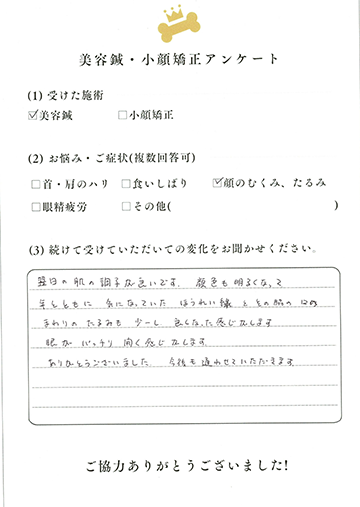 美容鍼・小顔矯正アンケート
(1) 受けた施術
☑美容鍼 □小顔矯正
(2) お悩み・ご症状(複数回答可)
□首・肩のハリ □食いしばり ☑顔のむくみ、たるみ
□眼精疲労 □その他( )
(3) 続けて受けていただいての変化をお聞かせください。
翌日の肌の調子が良いです。 顔色も明るくなって
年とともに 気になっていた ほうれい線 と その脇の
まわりの たるみも 少ーし 良くなった感じがします
眼が パッチリ 開く感じがします
ありがとうございました 今後も通わせていただきます
ご協力ありがとうございました!